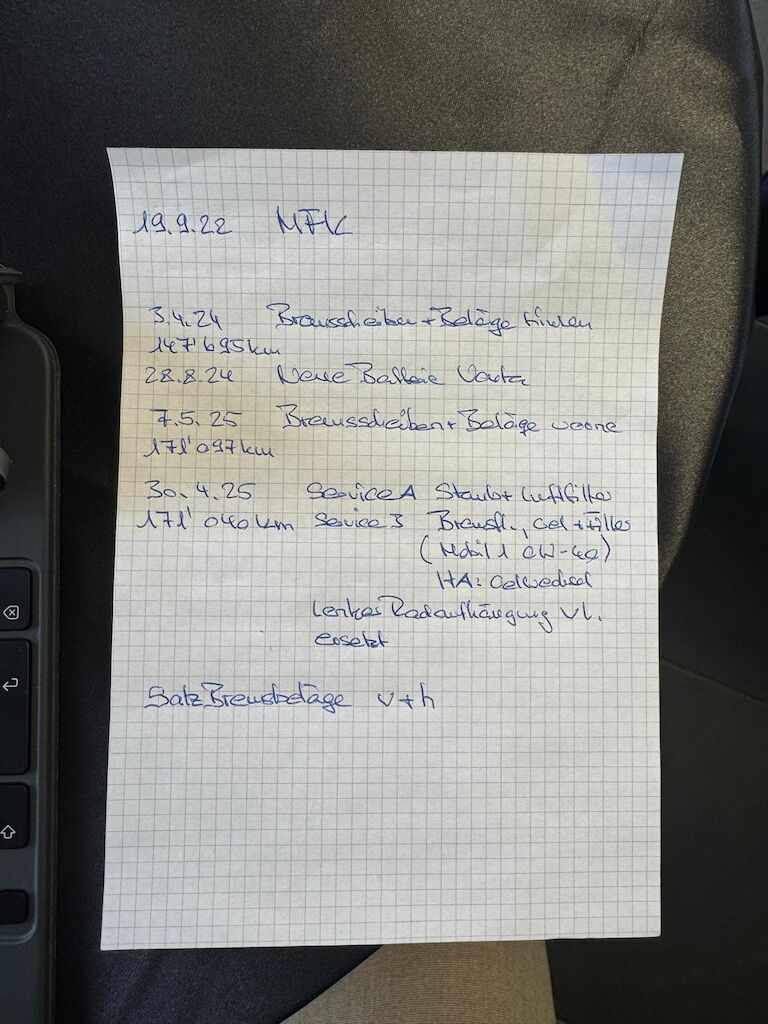 19.9.22 MFK
3.4.24 Bremsscheiben + Beläge hinten
147'695km
28.8.24 Neue Batterie Varta
7.5.25 Bremsscheiben + Beläge vorne
171'097km
30.4.25 Service A Staub + Luftfilter
171'040km Service 3 Bremsfl., Oel + Filter
(Mobil 1 0W-40)
HA: Oelwechsel
Lenker Radaufhängung vl.
ersetzt
Satz Bremsbeläge v+h